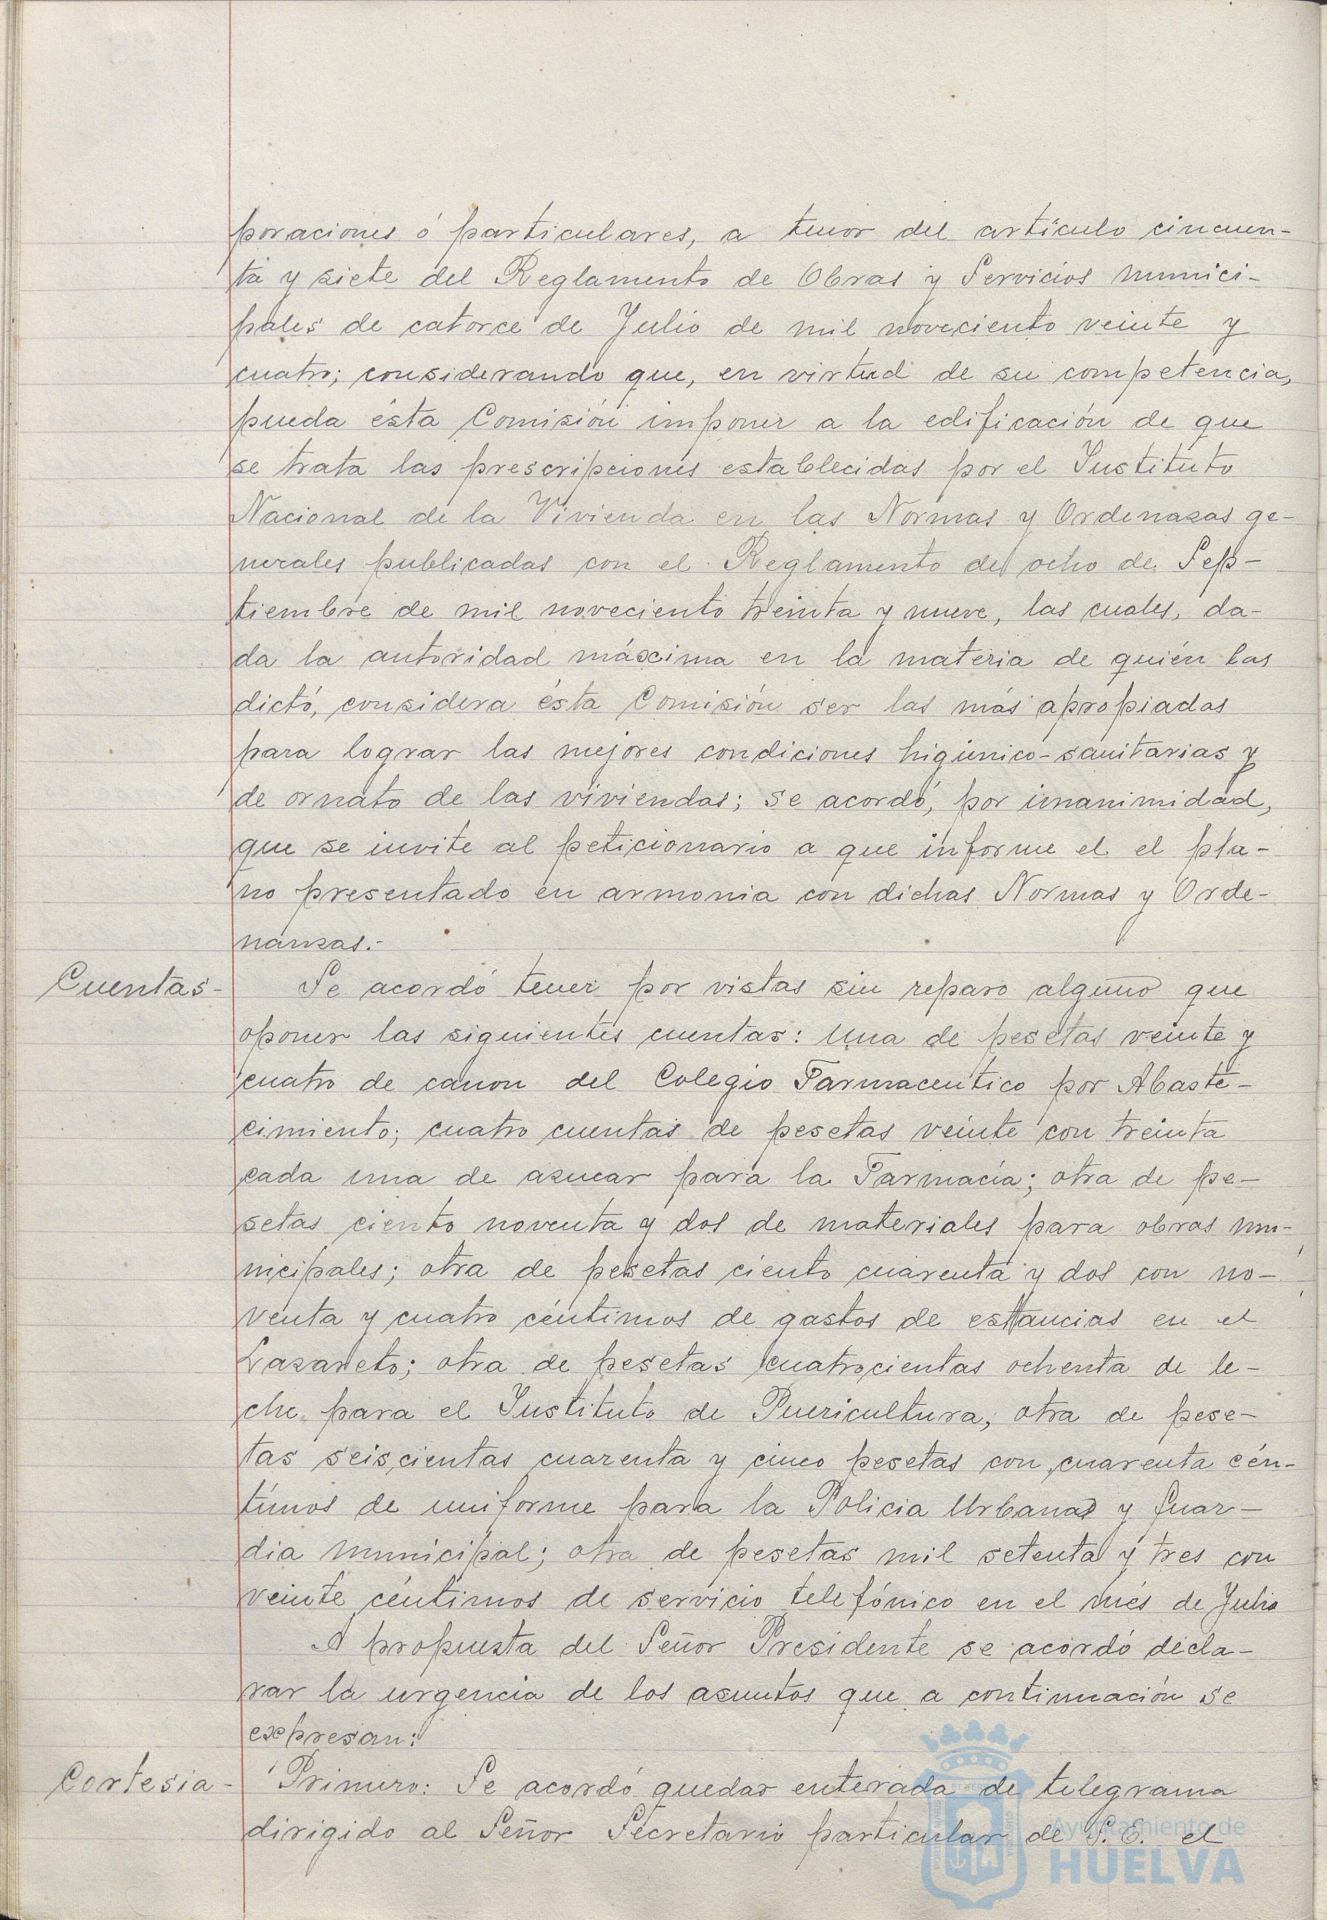 poraciones ó particulares, a tenor del artículo cincuen-
ta y siete del Reglamento de Obras y Servicios munici-
pales de catorce de Julio de mil noveciento veinte y
cuatro; considerando que, en virtud de su competencia,
pueda ésta Comisión imponer a la edificación de que
se trata las prescripciones establecidas por el Instituto
Nacional de la Vivienda en las Normas y Ordenazas ge-
nerales publicadas con el Reglamento de ocho de Sep-
tiembre de mil noveciento treinta y nueve, las cuales, da-
da la autoridad máxima en la materia de quién las
dictó, considera ésta Comisión ser las más apropiadas
para lograr las mejores condiciones higiénico-sanitarias y
de ornato de las viviendas; se acordó, por unanimidad,
que se invite al peticionario a que informe el el pla-
no presentado en armonia con dichas Normas y Orde-
nanzas.-
Cuentas- Se acordó tener por vistas sin reparo alguno que
oponer las siguientes cuentas: Una de pesetas veinte y
cuatro de canon del Colegio Farmaceutico por Abaste-
cimiento; cuatro cuentas de pesetas veinte con treinta
cada una de azucar para la Farmacia; otra de pe-
setas ciento noventa y dos de materiales para obras mu-
nicipales; otra de pesetas ciento cuarenta y dos con no-
venta y cuatro céntimos de gastos de estancias en el
Lazareto; otra de pesetas cuatrocientas ochenta de le-
che para el Instituto de Puericultura; otra de pese-
tas seiscientas cuarenta y cinco pesetas con cuarenta cén-
timos de uniforme para la Policia Urbana y Guar-
dia Municipal; otra de pesetas mil setenta y tres con
veinte céntimos de servicio telefónico en el més de Julio
A propuesta del Señor Presidente se acordó decla-
rar la urgencia de los asuntos que a continuación se
expresan:
Cortesia- Primero: Se acordó quedar enterada de telegrama
dirigido al Señor Secretario particular de S. E. el
Ayuntamiento de
HUELVA